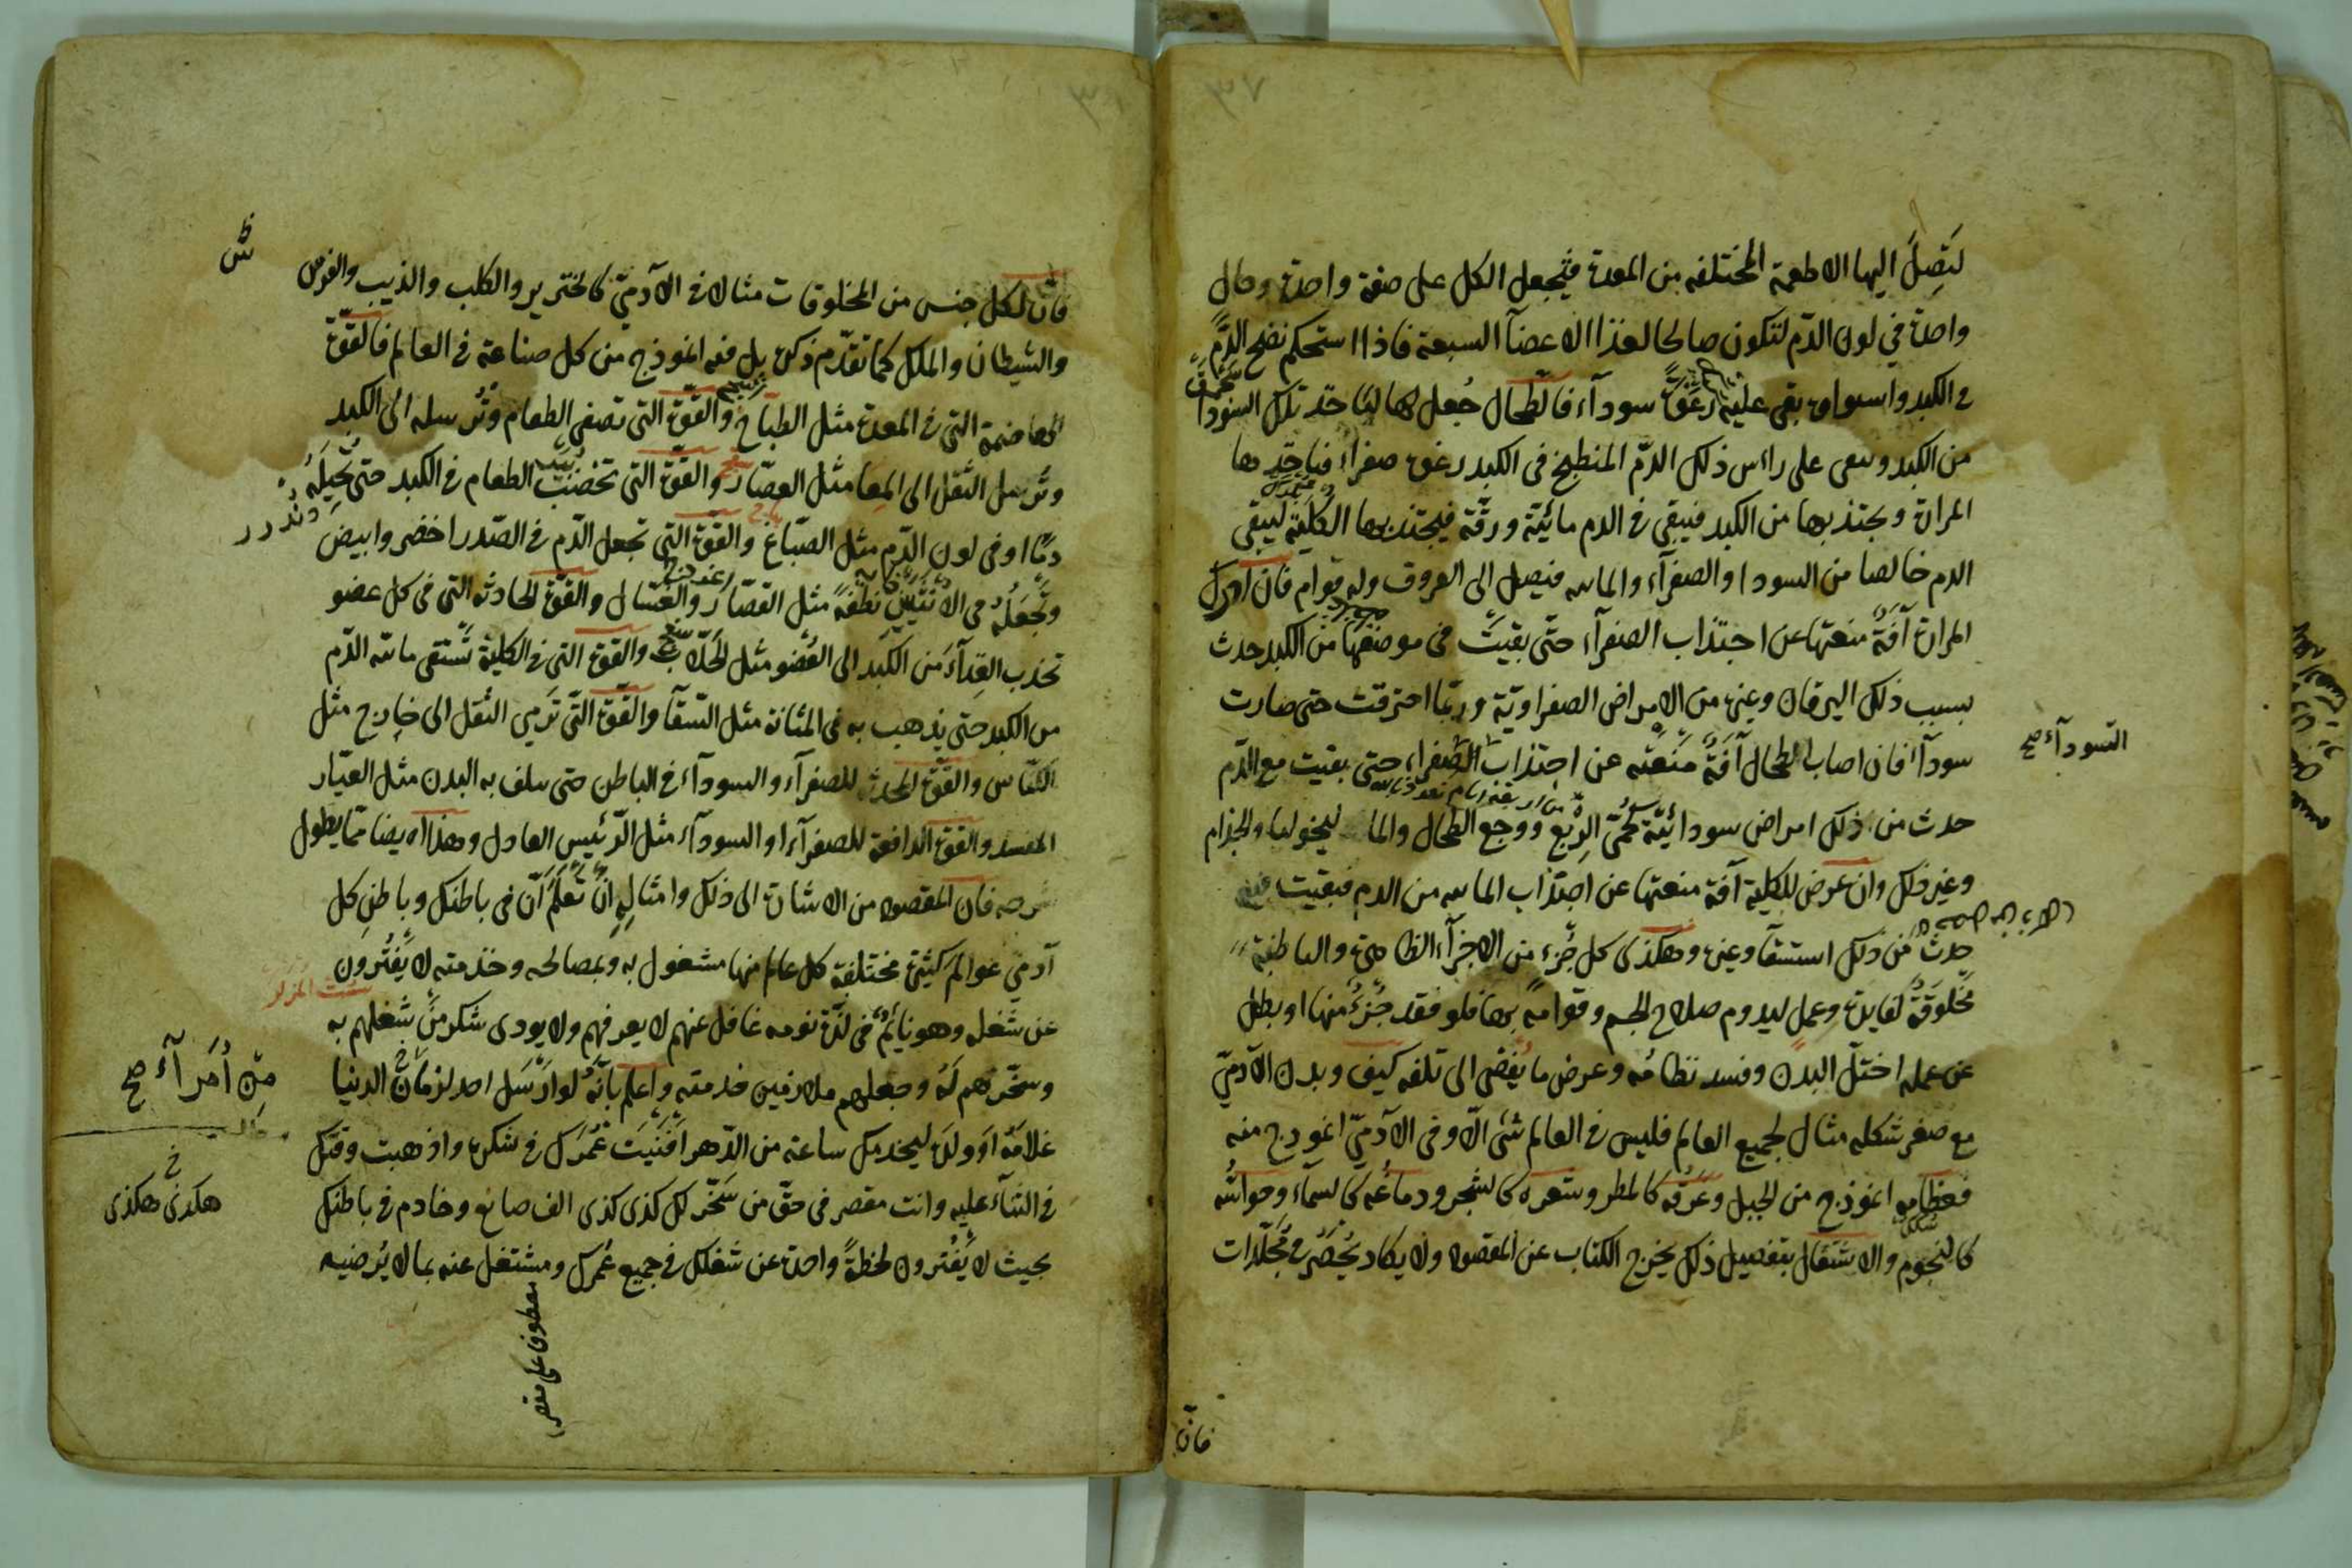 لتصل اليها الاطعمة المختلفه من المعدة فيجعل الكل على صفة واحدة وحال
واحدة في لون الدّم لتكون صالحا لغذا الاعضآ السبعة فاذا استحكم نضج الدّم
في الكبد واسواى بقى عليه رغوة سودآء فالطحال جُعل لها لياخذ تلك السودا
من الكبد وسعى على راس ذلك الدّم المنطبخ فى الكبد رغوة صفراء فياخذها
المرارة ويجتذبها من الكبد فيبقى فى الدم مائيّة ورقّة فيجتذبها الكلية ليبقى
الدم خالصا من السودا والصفرآء والمائيه فيصل الى العروق وله قوام فان ادرك
المرارة آفة منعتها عن اجتذاب الصفرآء حتّى بقيت فى موضعها من الكبد حدث
بسبب ذلك اليرقان وغيره من الامراض الصفراويّة وربّما احترقت حتى صارت
سودآ فان اصاب الطحال آفة منعته عن اجتذاب الصّفراء حتى بقيت مع الدّم
السودآء صح
حدث من ذلك امراض سودائيّة كحمّى الرّبع ووجع الطحال والماليخوليا والجذام
وغير ذلك وان عرض للكلية آفة منعتها عن اجتذاب المائيه من الدم فبقيت فيه
حدث من ذلك استسقآ وغيره وهكذى كل جُزء من الاجزآء الظاهرة والباطنة
مخلوقة لفايدة وعمل ليدوم صلاح الجسم وقوامه بها فلو فقد جُزءٌ منها او بطل
عن عمله اختلّ البدن وفسد نظامُه وعرض ما يُفضى الى تلفه كيف وبدن الآدمىّ
مع صغر شكله مثال لجميع العالم فليس فى العالم شئ الّا وفى الآدمىّ انموذج منه
فعظامه انموذج من الجبل وعَرَقُه كالمطر وشعره كالشجر ودماغُه كالسمآء وحواسّه
كالنجوم والاشتغال بتفصيل ذلك يخرج الكتاب عن المقصود ولا يكاد يُحصَر فى مُجلّدات
فانّ
فانّ لكل جنس من المخلوقات مثالا فى الآدمىّ كالخنزير والكلب والذيب والفرس
والشيطان والملك كما تقدّم ذكره بل فيه انموذج من كل صناعة فى العالم فالقوّة
الهاضمة التى فى المعدة مثل الطبّاخ والقوّة التى تصفى الطعام وتُرسله الى الكبد
وتُرسل الثقل الى المِعا مثل العصّار والقوّة التى تخضب الطعام فى الكبد حتى تُحيلَهُ
دمًا او فى لون الدّم مثل الصبّاغ والقوّة التى تجعل الدّم فى الصّدر اخضر وابيض
وتَجعَلُه فى الانثيين نطفةً مثل القصّار والغسّال والقوّة الجاذبه التى فى كل عضو
تجذب الغِذآء من الكبد الى العُضو مثل الجَلّاب والقوة التى فى الكلية تستقى مائيه الدّم
من الكبد حتى يذهب به فى المثانة مثل السّقآ والقوّة التّى ترمى الثقل الى خارج مثل
الكنّاس والقوّة المحدثه للصفرآء والسودآء فى الباطن حتى يتلف به البدن مثل العيّار
المفسد والقوة الدافعة للصفرآء او السودآء مثل الرّئيس العادل وهذا ايضا مما يطول
شرحه فان المقصود من الاشارة الى ذلك وامثالِه ان تعلم انّ فى باطنك وباطن كل
آدمي عوالم كثيرة مختلفة كل عالم منها مشغول به وبمصالحه وخدمته لا يَفتُرون
عن شغله وهو نايمٌ فى لذّة نومه غافل عنهم لا يعرفهم ولا يودى شكر مَن شغلهم به
وسخّرهم لَهُ وجعلهم ملازمين خدمته واعلم بانّه لو ارسَل احد لزمان الدنيا
من اُمَرآءِ صح
غلامَه او ولده ليخدمك ساعة من الدّهر افنيت عُمرك فى شكره واذهبت وقتك
فى الثنآء عليه وانت مقصر فى حقّ من سخّر لك كذى كذى الف صانع وخادم فى باطنك
هكذى هكذى
بحيث لا يَفتُرون لحظةً واحدة عن شغلك فى جميع عُمرك ومشتغل عنه بما لا يُرضيه
معطوف على مقصر